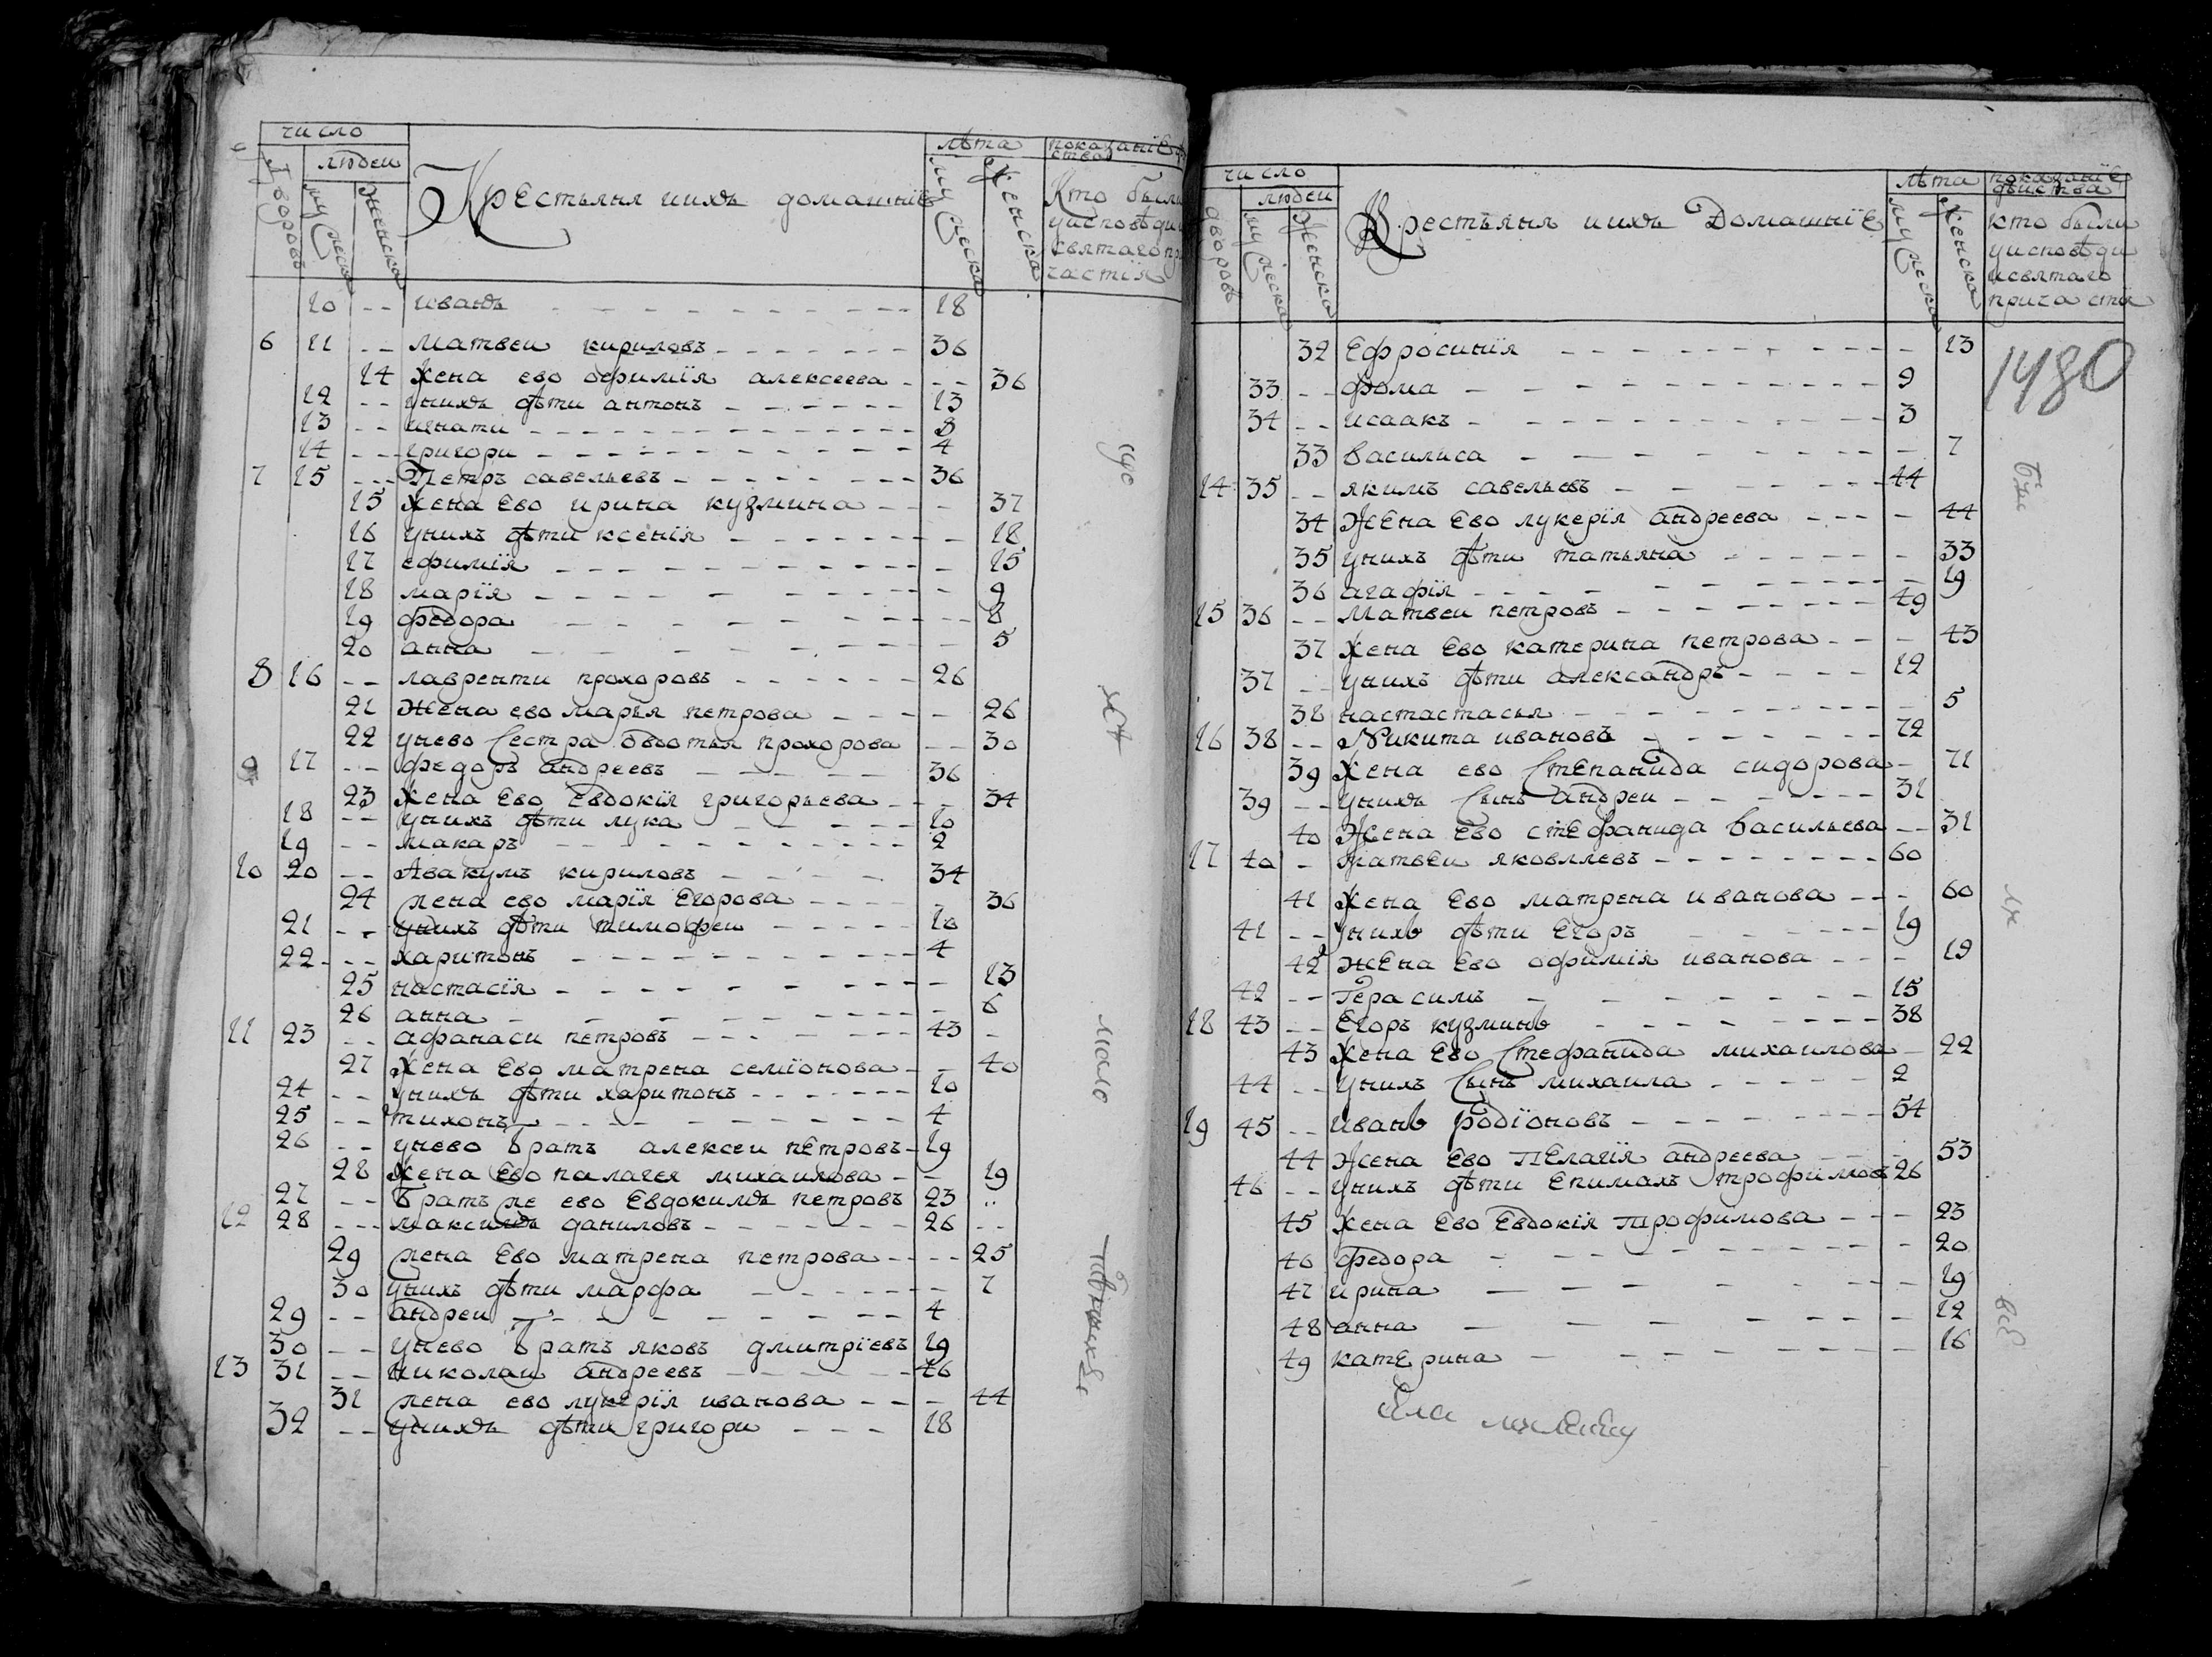 число
людеи
дворовъ
мужеска
женска
Крестьяня иихъ домашниѣ
лѣта
мужеска
женска
показаниѣ
ства
Кто были
уисповѣди
святаго при
частія
10 -- иванъ 18
6 11 -- матвеи кириловъ 36
14 жена ево офимїя алексеева 36
12 -- унихъ дѣти антонъ 13
13 -- игнати 8
14 -- григори 4
7 15 -- Петръ савельевъ 36
15 жена Ево ирина кузмина 37
16 унихъ дѣти ксенїя 18
17 ефимїя 15
18 марїя 9
19 федора 8
20 анна 5
8 16 -- лавренти прохоровъ 26
21 жена ево марья петрова 26
22 унево Сестра овдотья прохорова 30
9 17 -- федоръ андреевъ 36
23 жена Ево Евдокїя григорьева 34
18 -- унихъ дѣти лука 10
19 -- макаръ 2
10 20 -- Авакумъ кириловъ 34
24 жена ево марїя Егорова 36
21 -- унихъ дѣти тимофеи 10
22 -- харитонъ 4
25 настасїя 13
26 анна 6
11 23 -- афанаси петровъ 43
27 жена Ево матрена семїонова 40
24 -- унихъ дѣти харитонъ 10
25 -- тихонъ 4
26 -- унево братъ алексеи пЕтровъ 19
28 жена Ево палагея михаилова 19
27 -- братъ же ево Евдокимъ петровъ 23
12 28 -- максимъ даниловъ 26
29 жена Ево матрена петрова 25
30 унихъ дѣти марфа 7
29 -- андреи 4
30 -- унево братъ яковъ дмитрїевъ 19
13 31 -- николаи андреевъ 46
31 жена ево лукЕрїя иванова 44
32 -- унихъ дѣти григори 18
число
людеи
дворовъ
мужеска
женска
Крестьяня иихъ Домашнїе
лѣта
мужеска
женска
показанїе
дѣиства
кто были
уисповѣди
исвятаго
прича стія
1480
32 Ефросинїя 13
33 -- фома 9
34 -- исаакъ 3
33 василиса 7
14 35 -- якимъ савельевъ 44
34 жЕна Ево лукерїя андреева 44
35 унихъ дѣти татьяна 33
36 агафїя 19
15 36 -- матвеи петровъ 49
37 жена Ево катерина петрова 43
37 -- унихъ дѣти александръ 12
38 настастасья 5
16 38 -- Никита ивановъ 72
39 жена ево СтЕпанида сидорова 71
39 -- унихъ Сынъ андреи 31
40 жена Ево стЕфанида васильева 31
17 40 - матвЕи яковллевъ 60
41 жена Ево матрена иванова 60
41 -- унихъ дѣти Егоръ 19
42 жЕна Ево офимїя иванова 19
42 -- Герасимъ 15
18 43 -- Егоръ кузминъ 38
43 жена Ево Стефанида михаилова 22
44 -- унихъ Сынъ михаила 2
19 45 -- иванъ родїоновъ 54
44 жена Ево ПЕлагїя андреева 53
46 -- унихъ дѣти Епимахъ трофимовъ 26
45 жена Ево Евдокїя Трофимова 23
46 федора 20
47 ирина 19
48 анна 12
49 катЕрина 16